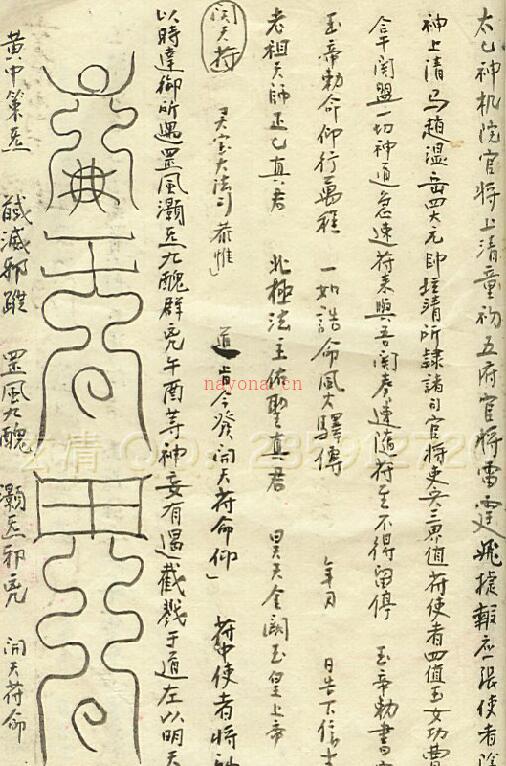 太乙神机院官将上清童初五府官将雷霆飛捷報應張使者
神上清马趙温岳四大元帥 清所隷諸司官将吏兵三界值符使者四值玉女功曹
合干関盟一切神道急速符来與吾関奏遵隨符至不得留停 玉帝勅書
玉帝勅命仰行萬程 一如誥命風火驛傳 年 月 日告下
老祖天師正乙真君 北極法主佑聖真君 昊天金闕玉皇上帝
開天符 灵宝大法司 恭惟 道 肯今發 開天符命仰 符中使者将
以時達御所遇罡風灏炁九醜群兇午酉等神妄有遏截戮于道左以明天
黄中策炁 馘滅邪蹤 罡風九醜 灏炁邪兇 開天符命
nayona.cn
玄清 QQ: